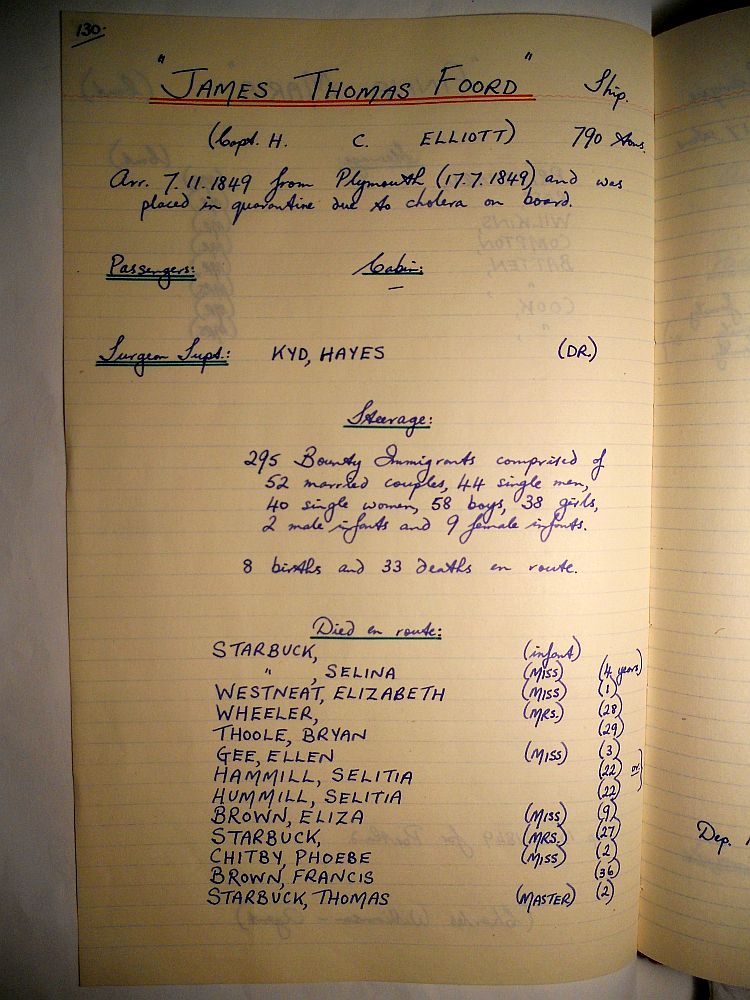 130.
"JAMES THOMAS FOORD" Ship.
(Capt. H. C. ELLIOTT) 790 tons.
Arr. 7.11.1849 from Plymouth (17.7.1849) and was
placed in quarantine due to cholera on board.
Passengers: Cabin:
—
Surgeon Supt.: KYD, HAYES (DR.)
Steerage:
295 Bounty Immigrants comprised of
52 married couples, 44 single men,
40 single women, 58 boys, 38 girls,
2 male infants and 9 female infants.
8 births and 33 deaths en route.
Died en route:
STARBUCK, (infant)
" , SELINA (MISS) (4 years)
WESTNEAT, ELIZABETH (MISS) (1)
WHEELER, (MRS.) (28)
THOOLE, BRYAN (29)
GEE, ELLEN (MISS) (3)
HAMMILL, SELITIA (22) or}
HUMMILL, SELITIA (22)
BROWN, ELIZA (MISS) (9)
STARBUCK, (MRS.) (27)
CHITBY, PHOEBE (MISS) (2)
BROWN, FRANCIS (36)
STARBUCK, THOMAS (MASTER) (2)
Dep.